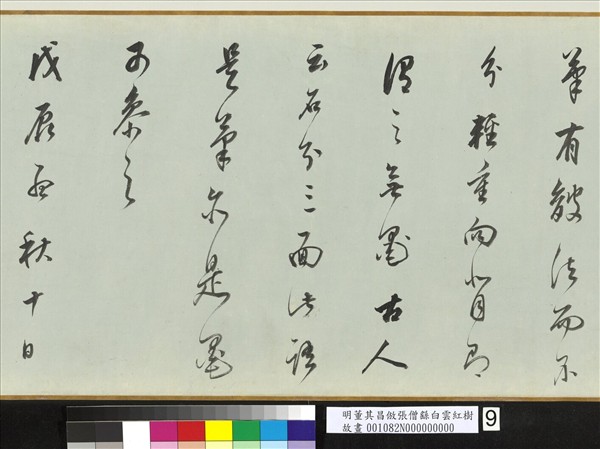 筆有皴法而不
分輕重向背即
謂之無墨古人
云石分三面此語
是筆亦是墨
可參之
戊辰秋十日
明董其昌倣張僧繇白雲紅樹
故畫 001082N000000000
9